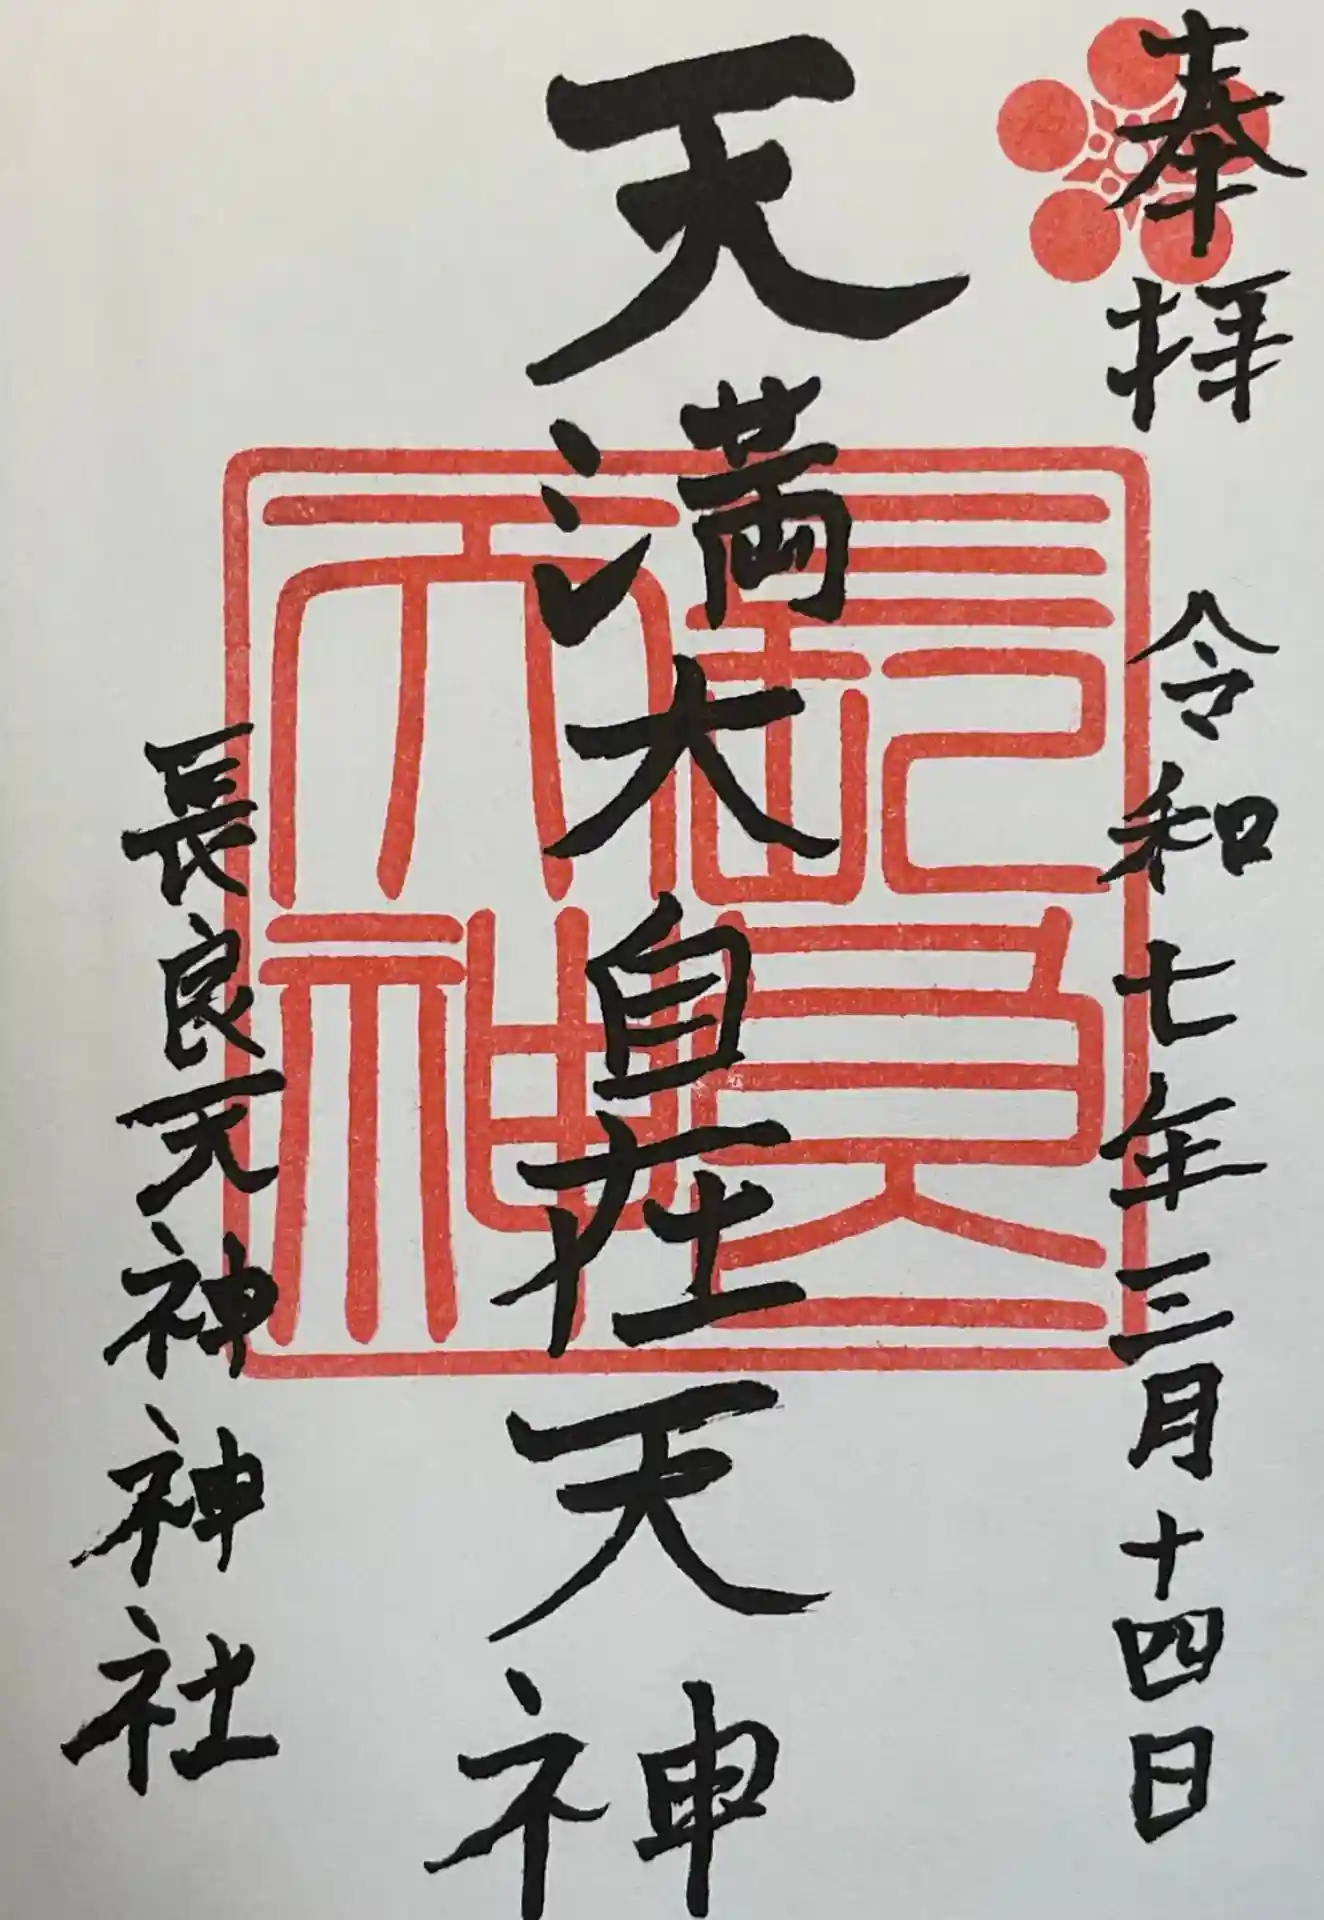 奉拝
令和七年三月十四日
天満大自在天神
長良天神神社
長良天神